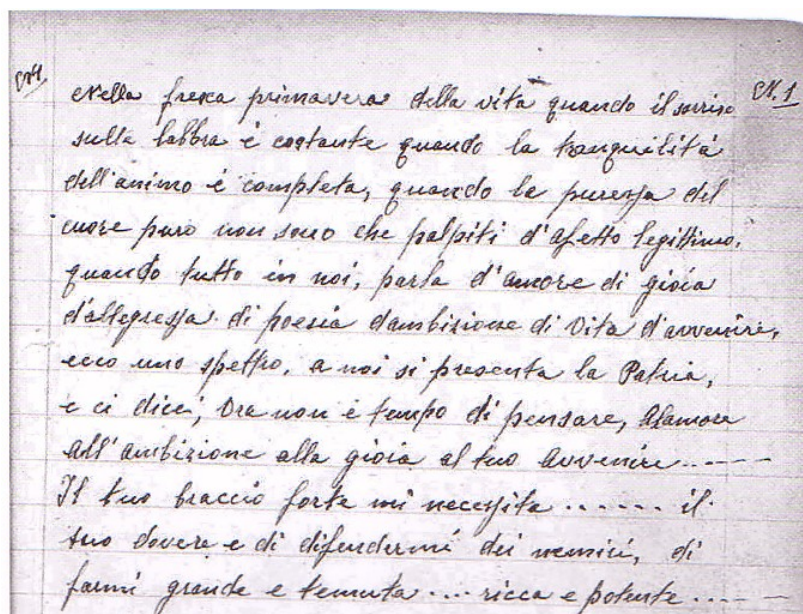 N. 1
Nella fresca primavera della vita quando il sorriso
sulla labbra è costante quando la tranquilità
dell'animo è completa, quando la purezza del
cuore puro non sono che palpiti d'afetto legittimo,
quando tutto in noi, parla d'amore di gioia
d'allegrezza di poesia dambizione di vita d'avvenire,
ecco uno spettro, a noi si presenta la Patria,
e ci dice; Ora non è tempo di pensare, alamore
all'ambizione alla gioia al tuo avvenire .....
Il tuo braccio forte mi necessita ...... il
tuo dovere e di difendermi dei nemici, di
farmi grande e temuta .... ricca e potente .....